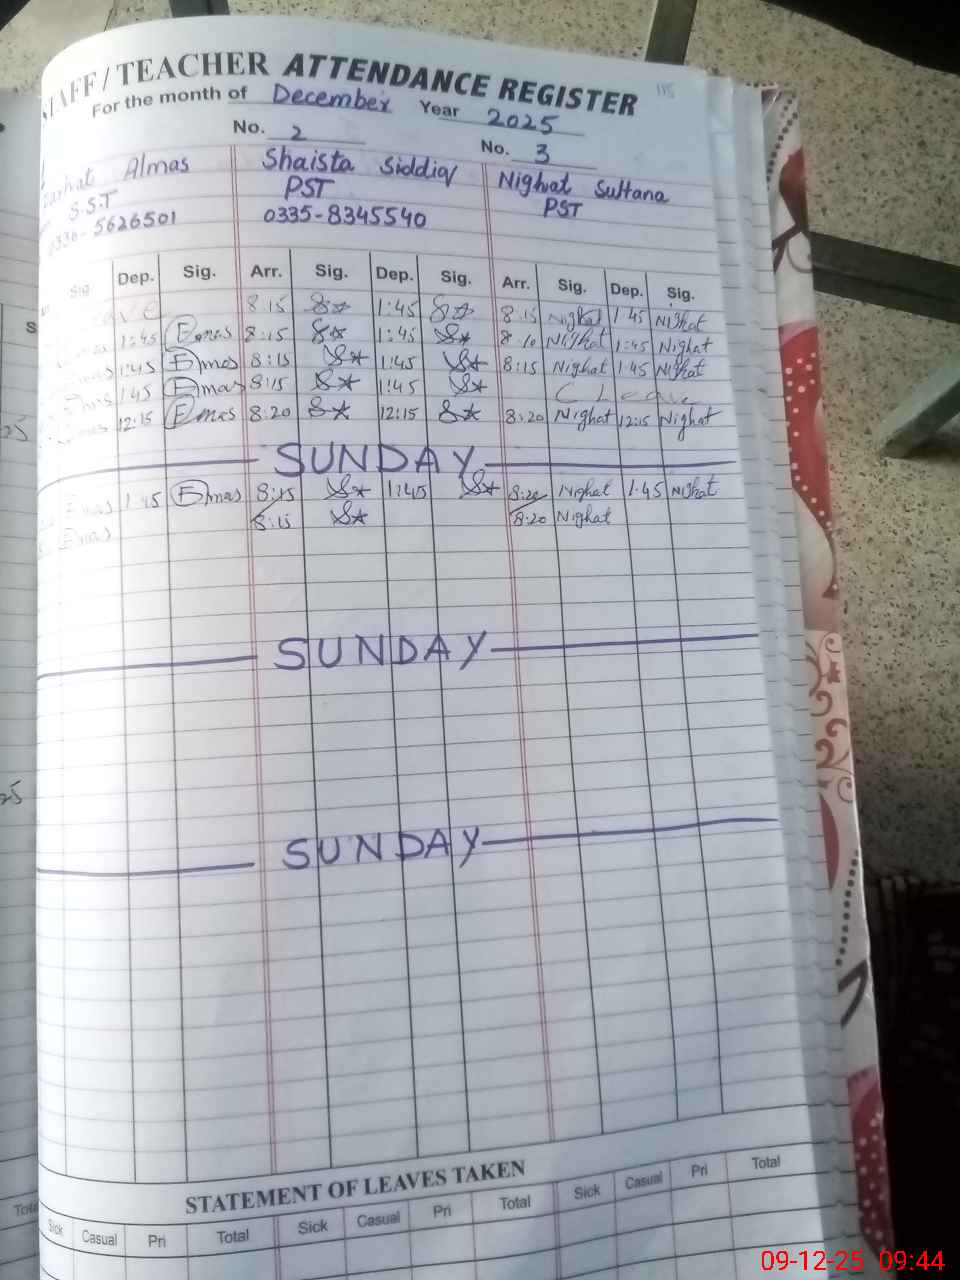 STAFF / TEACHER ATTENDANCE REGISTER
For the month of December Year 2025
No. 2 No. 3
Almas Shaista Siddiq Nighat Sultana
S.S.T PST PST
0336-5626501 0335-8345540
Sig Dep. Sig. Arr. Sig. Dep. Sig. Arr. Sig. Dep. Sig.
8:15 1:45 8:15 Nighat 1:45 Nighat
1:45 Emas 8:15 1:45 8:10 Nighat 1:45 Nighat
1:45 Emas 8:15 1:45 8:15 Nighat 1:45 Nighat
1:45 Emas 8:15 1:45 C Leave
12:15 Emas 8:20 12:15 8:20 Nighat 12:15 Nighat
SUNDAY
Emas 1:45 Emas 8:15 1:45 8:20 Nighat 1:45 Nighat
Emas 8:15 8:20 Nighat
SUNDAY
SUNDAY
STATEMENT OF LEAVES TAKEN
Sick Casual Pri Total Sick Casual Pri Total Sick Casual Pri Total
09-12-25 09:44